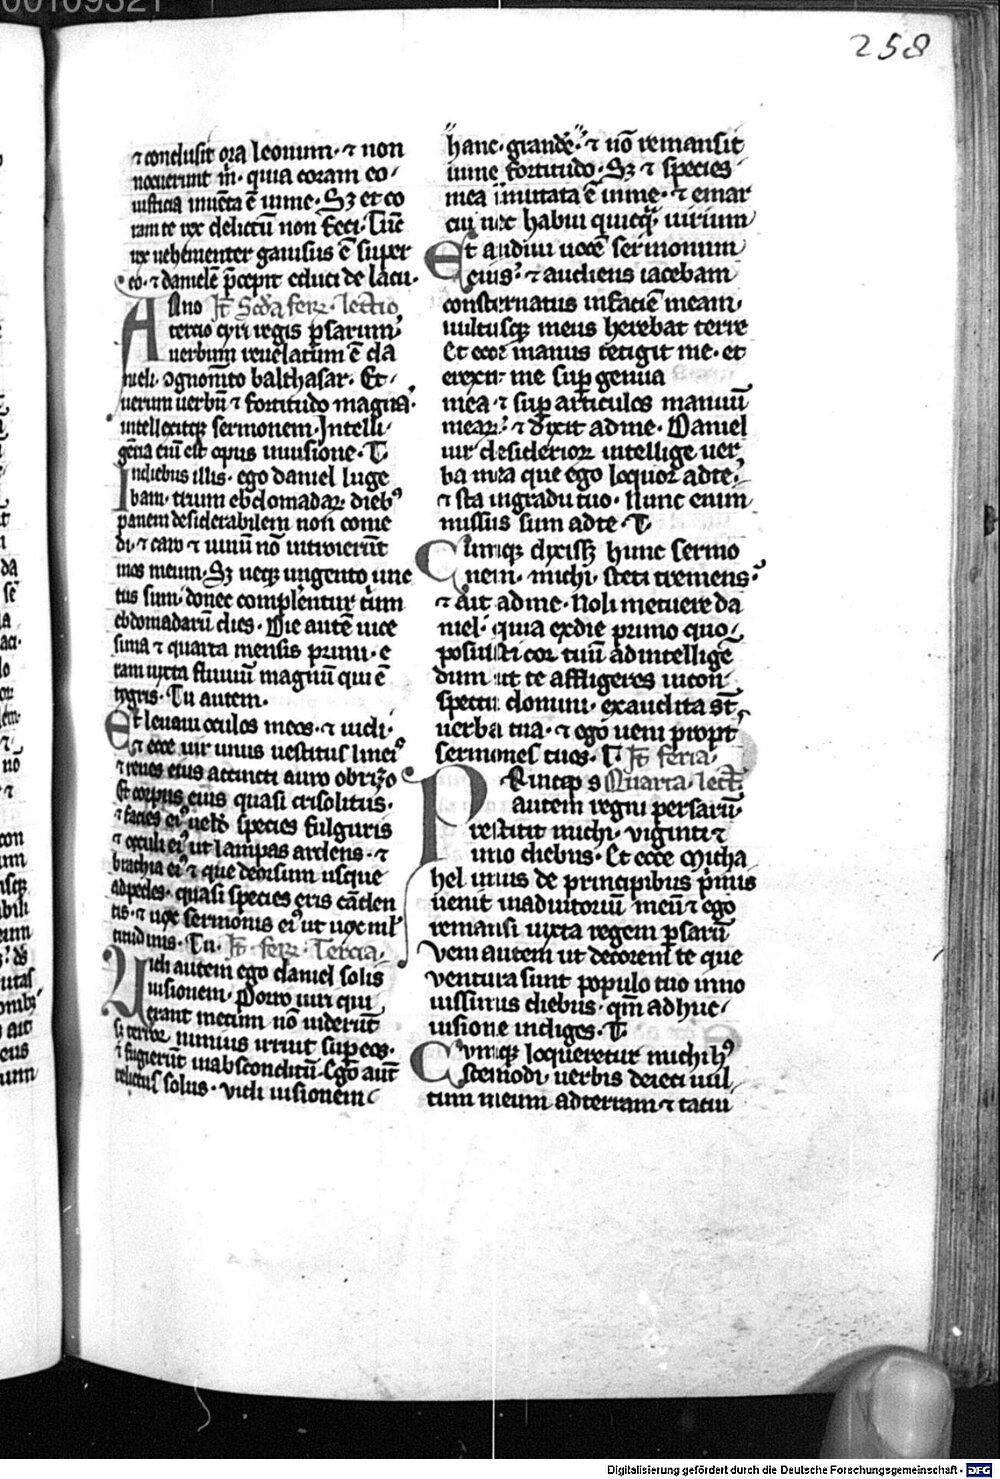 258
⁊ conclusit ora leonum · ⁊ non
nocuerunt m̄ · quia coram eo
iusticia inuēta ē in me · Sꝫ et co
ram te rex delictū non feci · Tūc
rex uehementer gauisus ē super
eo · ⁊ danielē p̄cepit educi de lacu ·
Anno It̄ Scda ferꝫ · lectio
tercio cyri regis ꝑsarum
uerbum reuelatum ē da
nieli · ꝯgnomīto balthasar · Et
uerum uerbū ⁊ fortitudo magna ·
intellexitqꝫ sermonem · Intelli
gēcia enī est opus in uisione · T ·
In diebus illis · ego daniel luge
bam · trium ebdomadaꝝ dieb⁹
panem desiderabilem non come
di · ⁊ caro ⁊ uinū nō introierūt
in os meum · Sꝫ neqꝫ ungento unc
tus sum · donec complerentur trium
ebdomadarū dies · Die autē uice
sima ⁊ quarta mensis primi · e
ram iuxta fluuiū magnū qui ē
tygris · Tu autem ·
Et leuaui oculos meos · ⁊ uidi ·
⁊ ecce uir unus uestitus linei⁹
⁊ renes eius accincti auro obrizo
Et corpus eius quasi crisolitus ·
⁊ facies ei⁹ uelud species fulguris
⁊ occuli ei⁹ ut lampas ardens · ⁊
brachia ei⁹ ⁊ que deorsum usque
ad pedes · quasi species eris cāden
tis · ⁊ uox sermonis ei⁹ ut uox ml̄
titudinis · Tu · It̄ ferꝫ · Tercia ·
Uidi autem ego daniel solis
uisionem · Porro uiri qui
erant mecum nō uiderūt
si terror nimius irruit sup eos ·
⁊ fugierūt in absconditū · Ego aūt
relictus solus · uidi uisionem
hanc · grandē · ⁊ nō remansit
in me fortitudo · Sꝫ ⁊ species
mea inmutata ē in me · ⁊ emar
cui nec habui quicqᷓ uirium
Et audiui uocē sermonum
eius · ⁊ audiens iacebam
consternatus in faciē meam ·
uultusqꝫ meus herebat terre
Et ecce manus tetigit me · et
erexit me sup genua
mea · ⁊ sup articulos manuū
meaꝝ · ⁊ dixit ad me · Daniel
uir desiderioꝝ intellige uer
ba mea que ego loquor ad te
⁊ sta in gradu tuo · Nunc enim
missus sum ad te · T ·
Cumqꝫ dixissꝫ hunc sermo
nem · michi · steti tremens ·
⁊ ait ad me · Noli metuere da
niel · quia ex die primo quo
posuisti cor tuū ad intelligē
dum ut te affligeres in con
spectu domini · exaudita st̄
uerba tua · ⁊ ego ueni propt
sermones tuos · T · It̄ feria ·
Princeps Quarta · lectō
autem regni persarū ·
restitit michi · viginti ⁊
uno diebus · Et ecce Micha
hel unus de principibus p̄mis
uenit in aduitoriū meū ⁊ ego
remansi iuxta regem ꝑsarū
Veni autem ut docerem te que
uentura sunt populo tuo in no
uissimis diebus · qm̄ adhuc
uisione indiges · T ·
Cumqꝫ loqueretur michi h⁹
scemodi uerbis deieci uul
tum meum ad terram ⁊ tacui
Digitalisierung gefördert durch die Deutsche Forschungsgemeinschaft · DFG